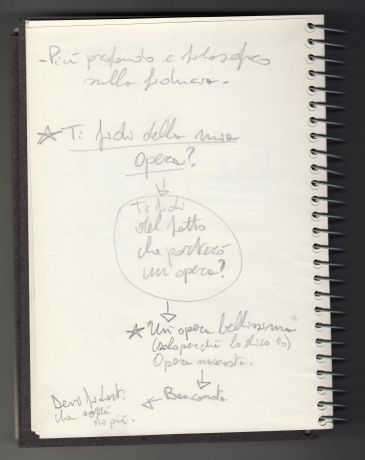 - Più profondo e filosofico
sulla fiducia.
Ti fidi della mia
opera?
Ti fidi
del fatto
che porterò
un opera?
"Un opera bellissima"
(solo perché lo dico io)
Opera nascosta.
Banconota
Devi fidarti
che
più.